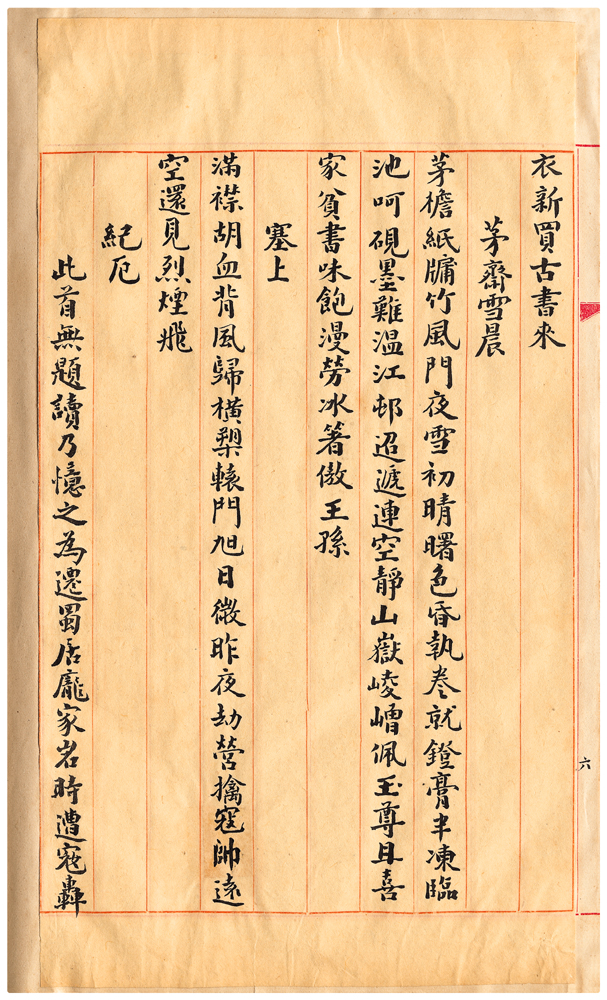 衣新買古書來
茅齋雪晨
茅檐紙牗竹風門夜雪初晴曙色昏執卷就鐙膏半凍臨
池呵硯墨難温江邨迢遞連空靜山嶽崚嶒佩玉尊且喜
家貧書味飽漫勞冰箸傲王孫
塞上
滿襟胡血背風歸橫槊轅門旭日微昨夜劫營擒寇帥遠
空還見烈煙飛
紀厄
此首無題讀乃憶之為遷蜀居龐家岩時遭寇轟
六